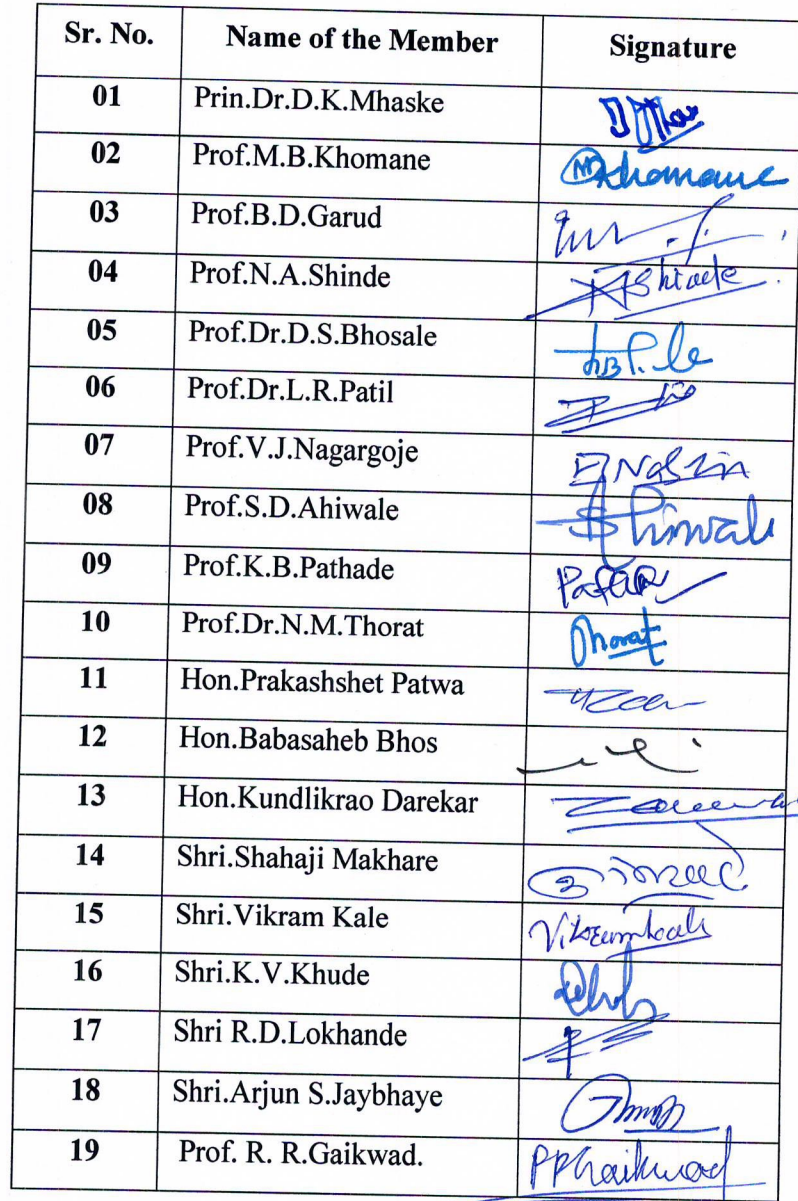 Sr. No. Name of the Member Signature
01 Prin.Dr.D.K.Mhaske
02 Prof.M.B.Khomane Khomane
03 Prof.B.D.Garud
04 Prof.N.A.Shinde Shinde
05 Prof.Dr.D.S.Bhosale
06 Prof.Dr.L.R.Patil
07 Prof.V.J.Nagargoje
08 Prof.S.D.Ahiwale
09 Prof.K.B.Pathade
10 Prof.Dr.N.M.Thorat Thorat
11 Hon.Prakashshet Patwa
12 Hon.Babasaheb Bhos
13 Hon.Kundlikrao Darekar
14 Shri.Shahaji Makhare
15 Shri.Vikram Kale
16 Shri.K.V.Khude
17 Shri R.D.Lokhande
18 Shri.Arjun S.Jaybhaye
19 Prof. R. R.Gaikwad. Gaikwad